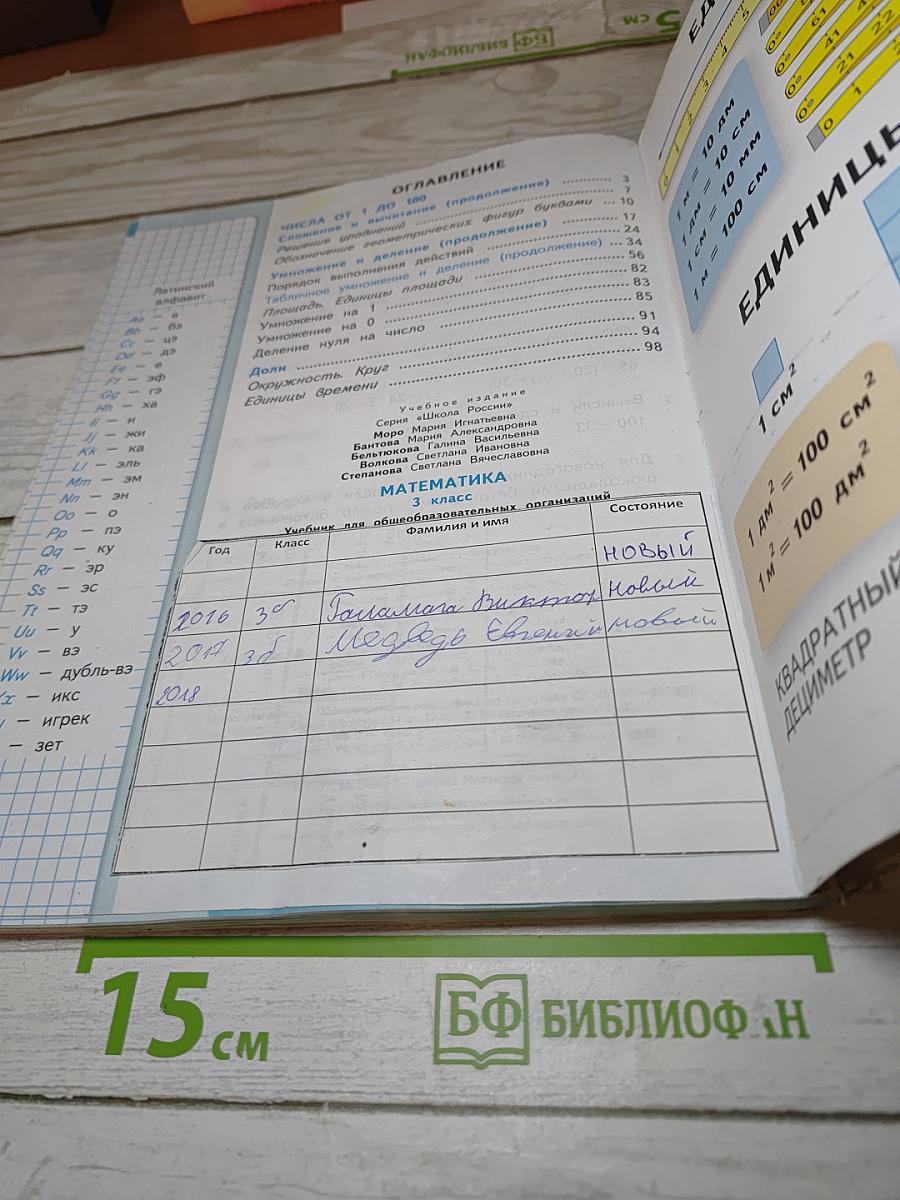 5 см
БФ БИБЛИОФАН
ОГЛАВЛЕНИЕ
ЧИСЛА ОТ 1 ДО 100
Сложение и вычитание (продолжение) ............ 3
Решение уравнений ............ 7
Обозначение геометрических фигур буквами ... 10
Умножение и деление (продолжение) ............ 17
Порядок выполнения действий ............ 24
Табличное умножение и деление (продолжение) ... 34
Площадь. Единицы площади ............ 56
Умножение на 1 ............ 82
Умножение на 0 ............ 83
Деление нуля на число ............ 85
Доли ............ 91
Окружность. Круг ............ 94
Единицы времени ............ 98
Учебное издание
Серия «Школа России»
Моро Мария Игнатьевна
Бантова Мария Александровна
Бельтюкова Галина Васильевна
Волкова Светлана Ивановна
Степанова Светлана Вячеславовна
МАТЕМАТИКА
3 класс
Учебник для общеобразовательных организаций
Год Класс Фамилия и имя Состояние
новый
2016 3б Галамага Виктор новый
2017 3б Медведь Евгений новый
2018
Латинский
алфавит
Aa — а
Bb — бэ
Cc — цэ
Dd — дэ
Ee — е
Ff — эф
Gg — гэ
Hh — ха
Ii — и
Jj — жи
Kk — ка
Ll — эль
Mm — эм
Nn — эн
Oo — о
Pp — пэ
Qq — ку
Rr — эр
Ss — эс
Tt — тэ
Uu — у
Vv — вэ
Ww — дубль-вэ
x — икс
— игрек
— зет
1 м = 10 дм
1 дм = 10 см
1 см = 10 мм
1 м = 100 см
ЕДИНИЦЫ
1 см²
1 дм² = 100 см²
1 м² = 100 дм²
КВАДРАТНЫЙ
ДЕЦИМЕТР
15 см
БФ БИБЛИОФАН